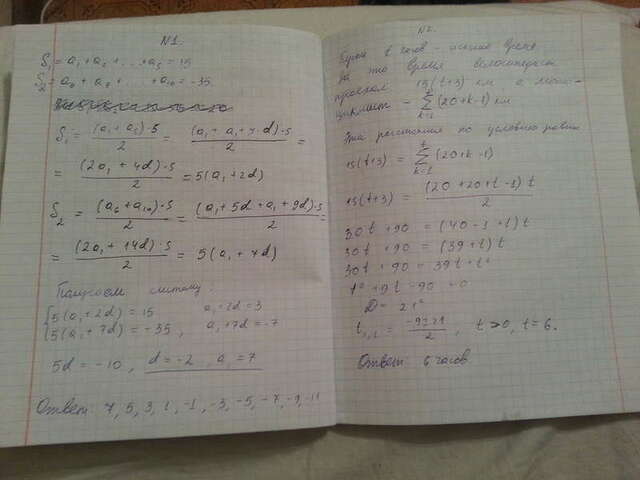 N1.
S₁ = a₁ + a₂ + ... + a₅ = 15
S₂ = a₆ + a₇ + ... + a₁₀ = -35
S₁ = (a₁ + a₅)·5 / 2 = (a₁ + a₁ + 4d)·5 / 2 =
= (2a₁ + 4d)·5 / 2 = 5(a₁ + 2d)
S₂ = (a₆ + a₁₀)·5 / 2 = (a₁ + 5d + a₁ + 9d)·5 / 2 =
= (2a₁ + 14d)·5 / 2 = 5(a₁ + 7d)
Получаем систему:
{ 5(a₁ + 2d) = 15 a₁ + 2d = 3
5(a₁ + 7d) = -35 , a₁ + 7d = -7
5d = -10 , d = -2 , a₁ = 7
Ответ: 7, 5, 3, 1, -1, -3, -5, -7, -9, -11
N2.
t часов - искомое время
За это время велосипедист
проехал 15(t+3) км, а мото-
циклист - ∑ᵗₖ₌₁ (20+k-1) км
Эти расстояния по условию равны
15(t+3) = ∑ᵗₖ₌₁ (20+k-1)
15(t+3) = (20+20+t-1) t / 2
30t + 90 = (40-1+t) t
30t + 90 = (39+t) t
30t + 90 = 39t + t²
t² + 9t - 90 = 0
D = 21²
t₁,₂ = (-9±21) / 2 , t>0, t=6.
Ответ: 6 часов